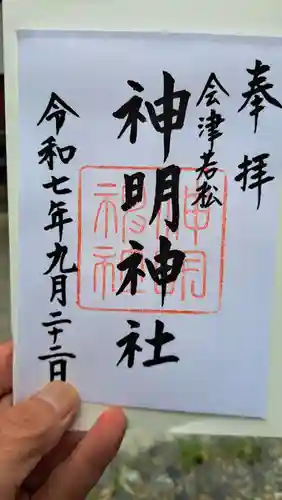 奉拝
会津若松
神明神社
令和七年九月二十二日
神明
神社